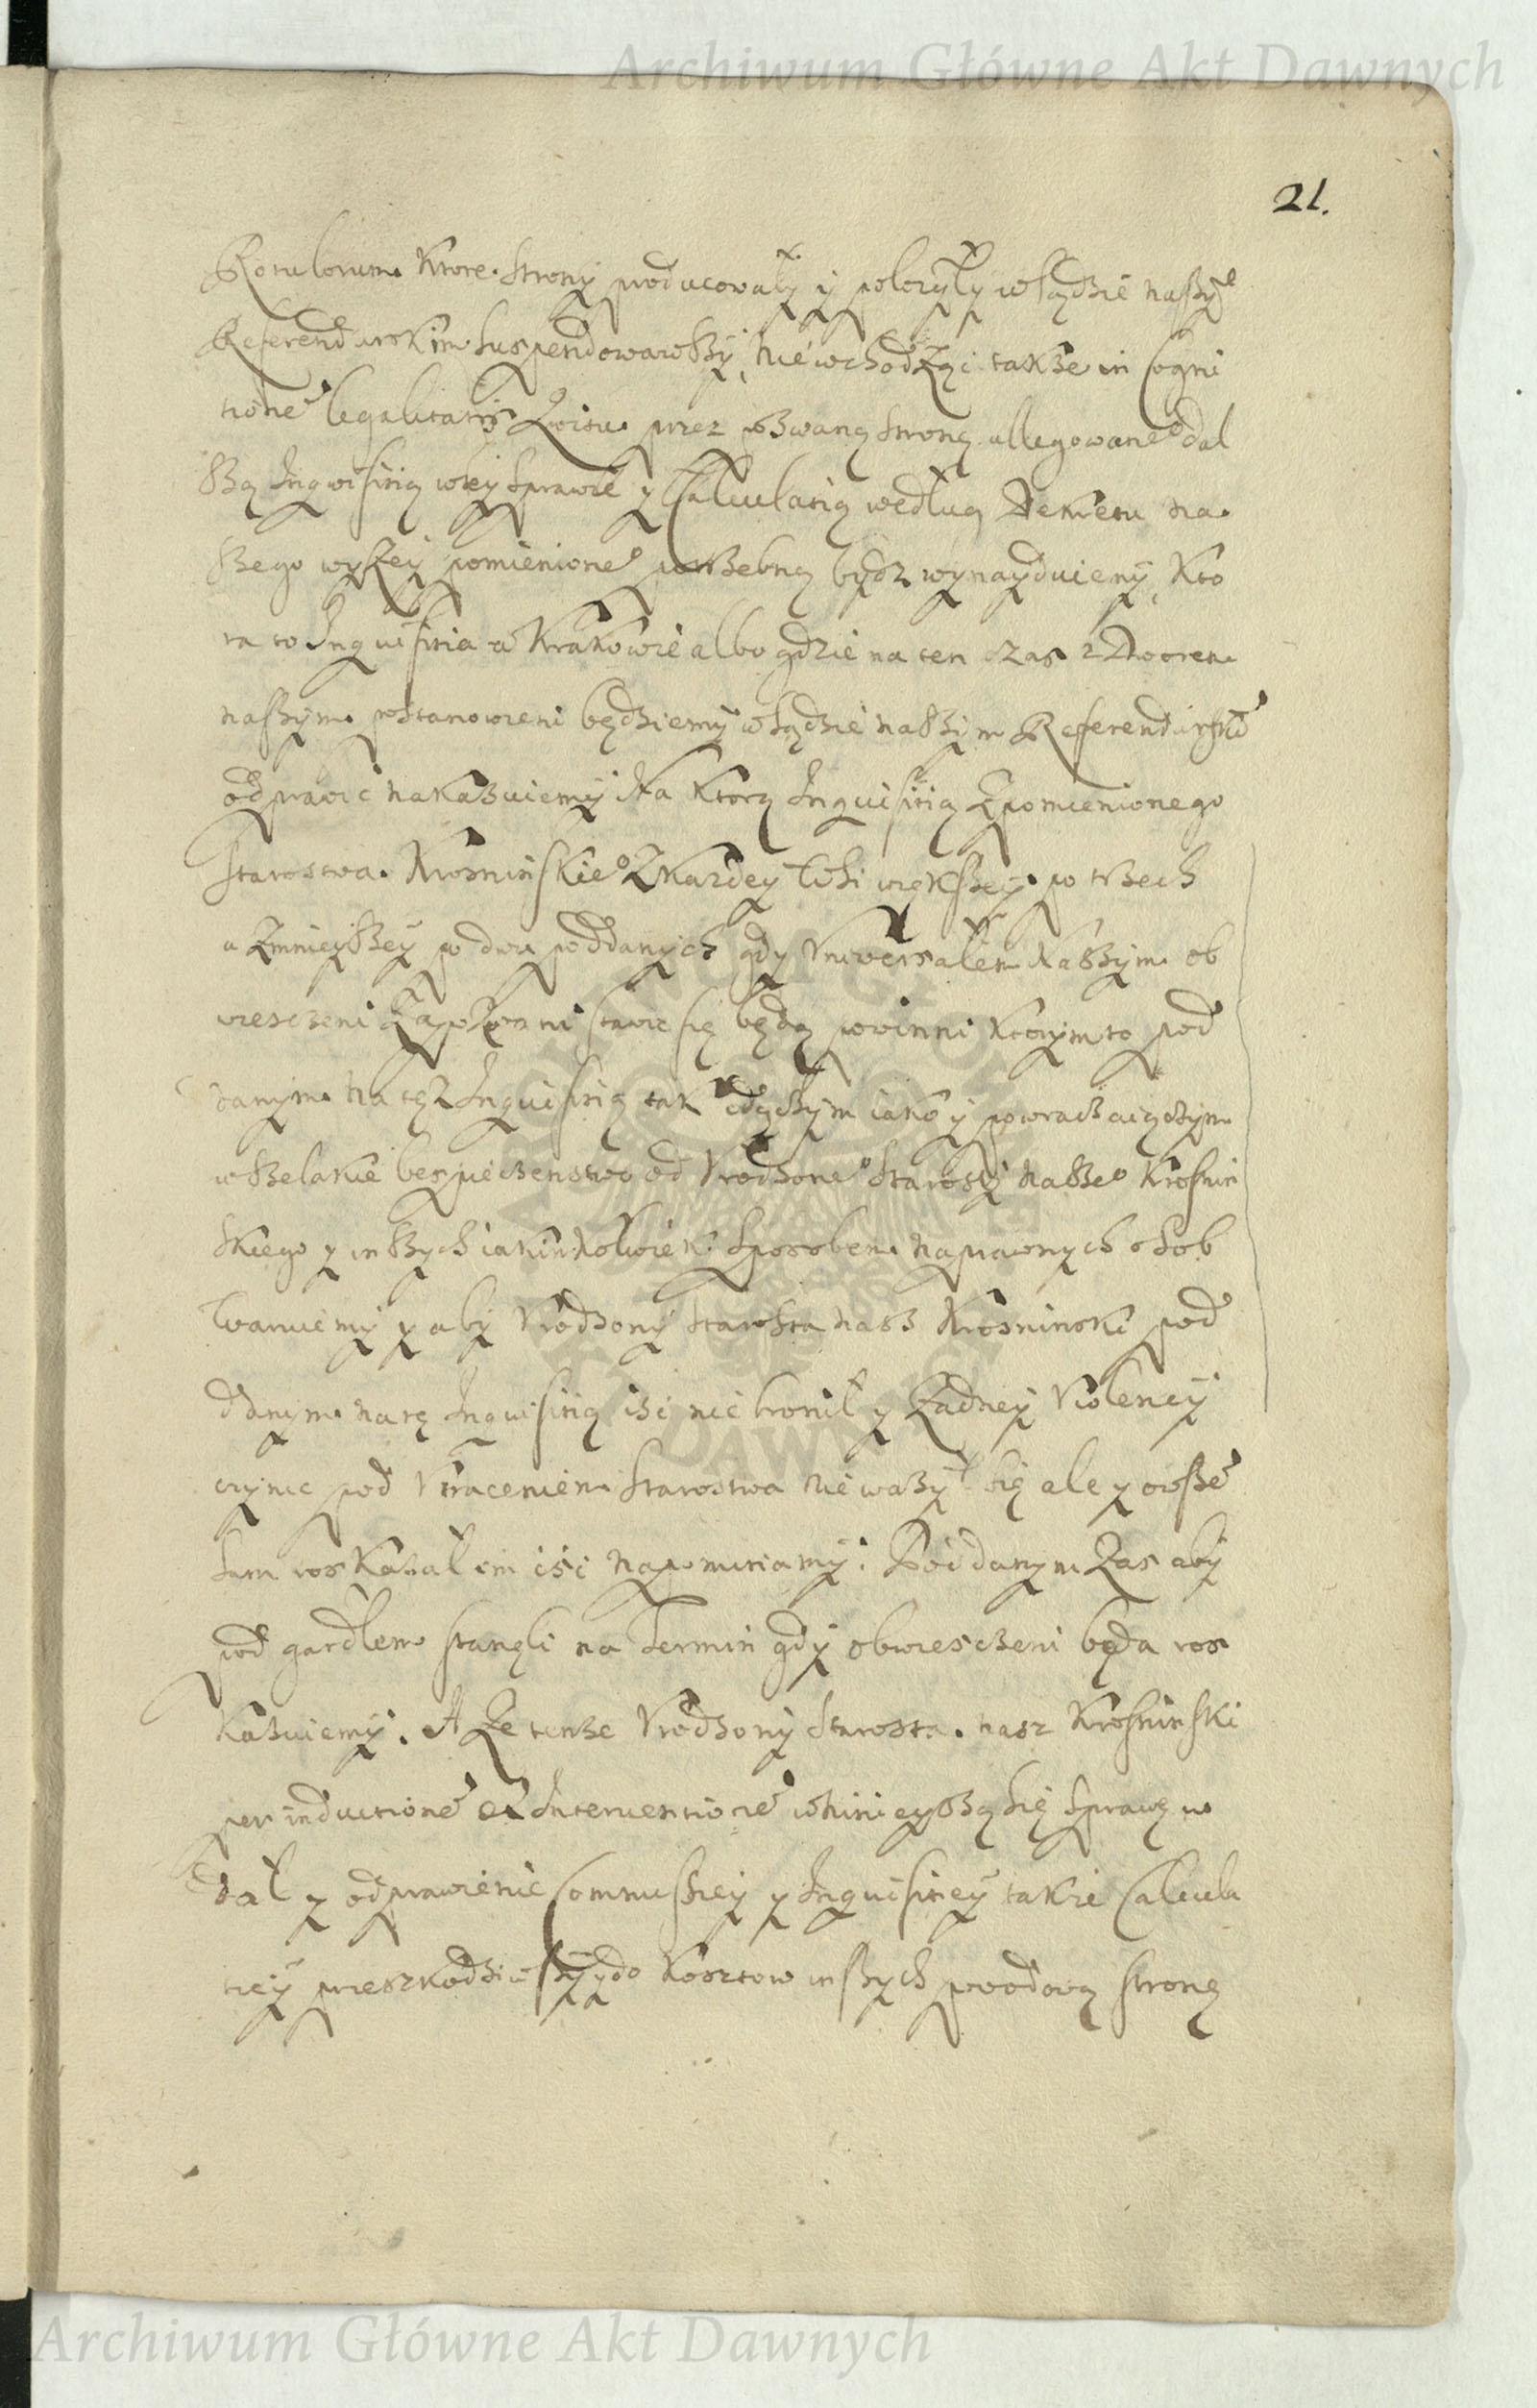 Archiwum Główne Akt Dawnych
21.
Rotulorum ktore strony producowały y położyły w sądzie naszy͠
Referendarskim suspendowawszy, nie wchodząc także in Cogni
tione͠ legalitatis Kwitu przez pozwaną stronę allegowane° dal
szą Inquisitią w tey sprawie y Calculatią według Dekretu na
szego wyżey pomienione° potrzebną bydz wynayduiemy, kto
ra to Inquisitia w Krakowie albo gdzie na ten czas z Dworem
naszym postanowieni będziemy w sądzie naszim Referendarski͠
odprawic nakazuiemy Na ktorą Inquisitią Z pomienionego
Starostwa Krosninskie° Z kazdey wsi większey po trzech
a Zmnieyszey po dwu poddanych gdy Vniwersałem Naszym ob
wiesczeni Za pozwani stawic się będą powinni ktorym to pod
danym na tęz Inquisitią tak idączym iako y powraczaiączym
wszelakie bespieczenstwo od Vrodzone° Starosty nasze° Krosnin
skiego y inszych iakimkolwiek sposobem naprawnych osob
waruiemy y aby Vrodzony Starosta nasz Krosninski pod
danym na tę Inquisitią isc nie bronił y Zadney Violencÿ
czynic pod Vtraceniem Starostwa nie wazył się ale y owsze͠
sam roskazał im isc napominamy. Poddanym Zas aby
pod gardłem stanęli na termin gdy obwiesczeni będą ros
kazuiemy. A Ze tenze Vrodzony Starosta nasz Krosninski
per inductione͠ et Interuentione͠ w ninieyszą się sprawę w
dał y odprawienie Commissiey y Inquisitiey takze Calcula
tiey przeszkodziwszy y do kosztow inszych powodową stronę
Archiwum Główne Akt Dawnych